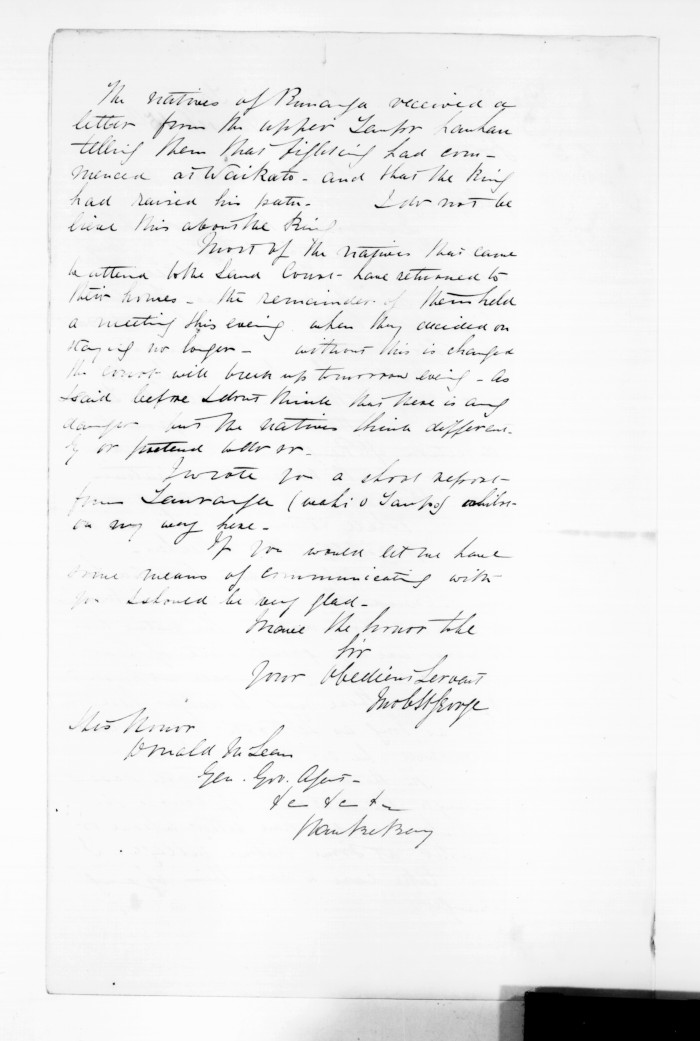 The natives of Runanga received a
letter from the upper Taupo hauhau
telling them that fighting had com-
menced at Waikato - and that the King
had revised his patu. I do not be
lieve this about the King
Most of the natives that came
to attend to the Land Court have returned to
their homes - the remainder of them held
a meeting this evening when they decided on
staying no longer - without this is changed
the court will break up tomorrow evening - As
I said before I dont think that there is any
danger but the natives think different-
ly or pretend to do so.
I wrote you a short report
from Tauranga (waki o Taupo) whilst
on my way here -
If you would let me have
some means of communicating with
you I should be very glad -
I have the honor to be
Sir
Your Obedient Servant
Jno C St George
His Honor
Donald McLean
Gen. Gov. Agent -
&c &c &c
Hawke Bay